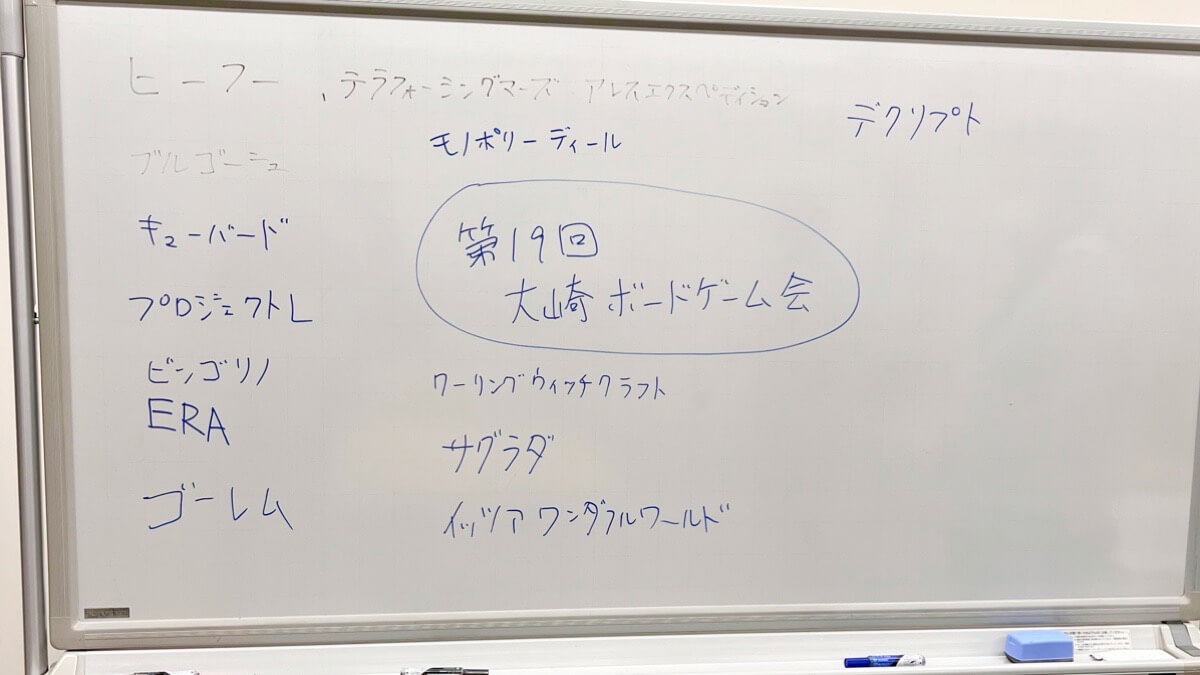 ヒーフー
、テラフォーミングマーズ アレスエクスペディション
デクリプト
モノポリーディール
ブルゴーニュ
キューバード
第19回
大崎ボードゲーム会
プロジェクトL
ビンゴリノ
ワーリングウィッチクラフト
ERA
サグラダ
ゴーレム
イッツアワンダフルワールド